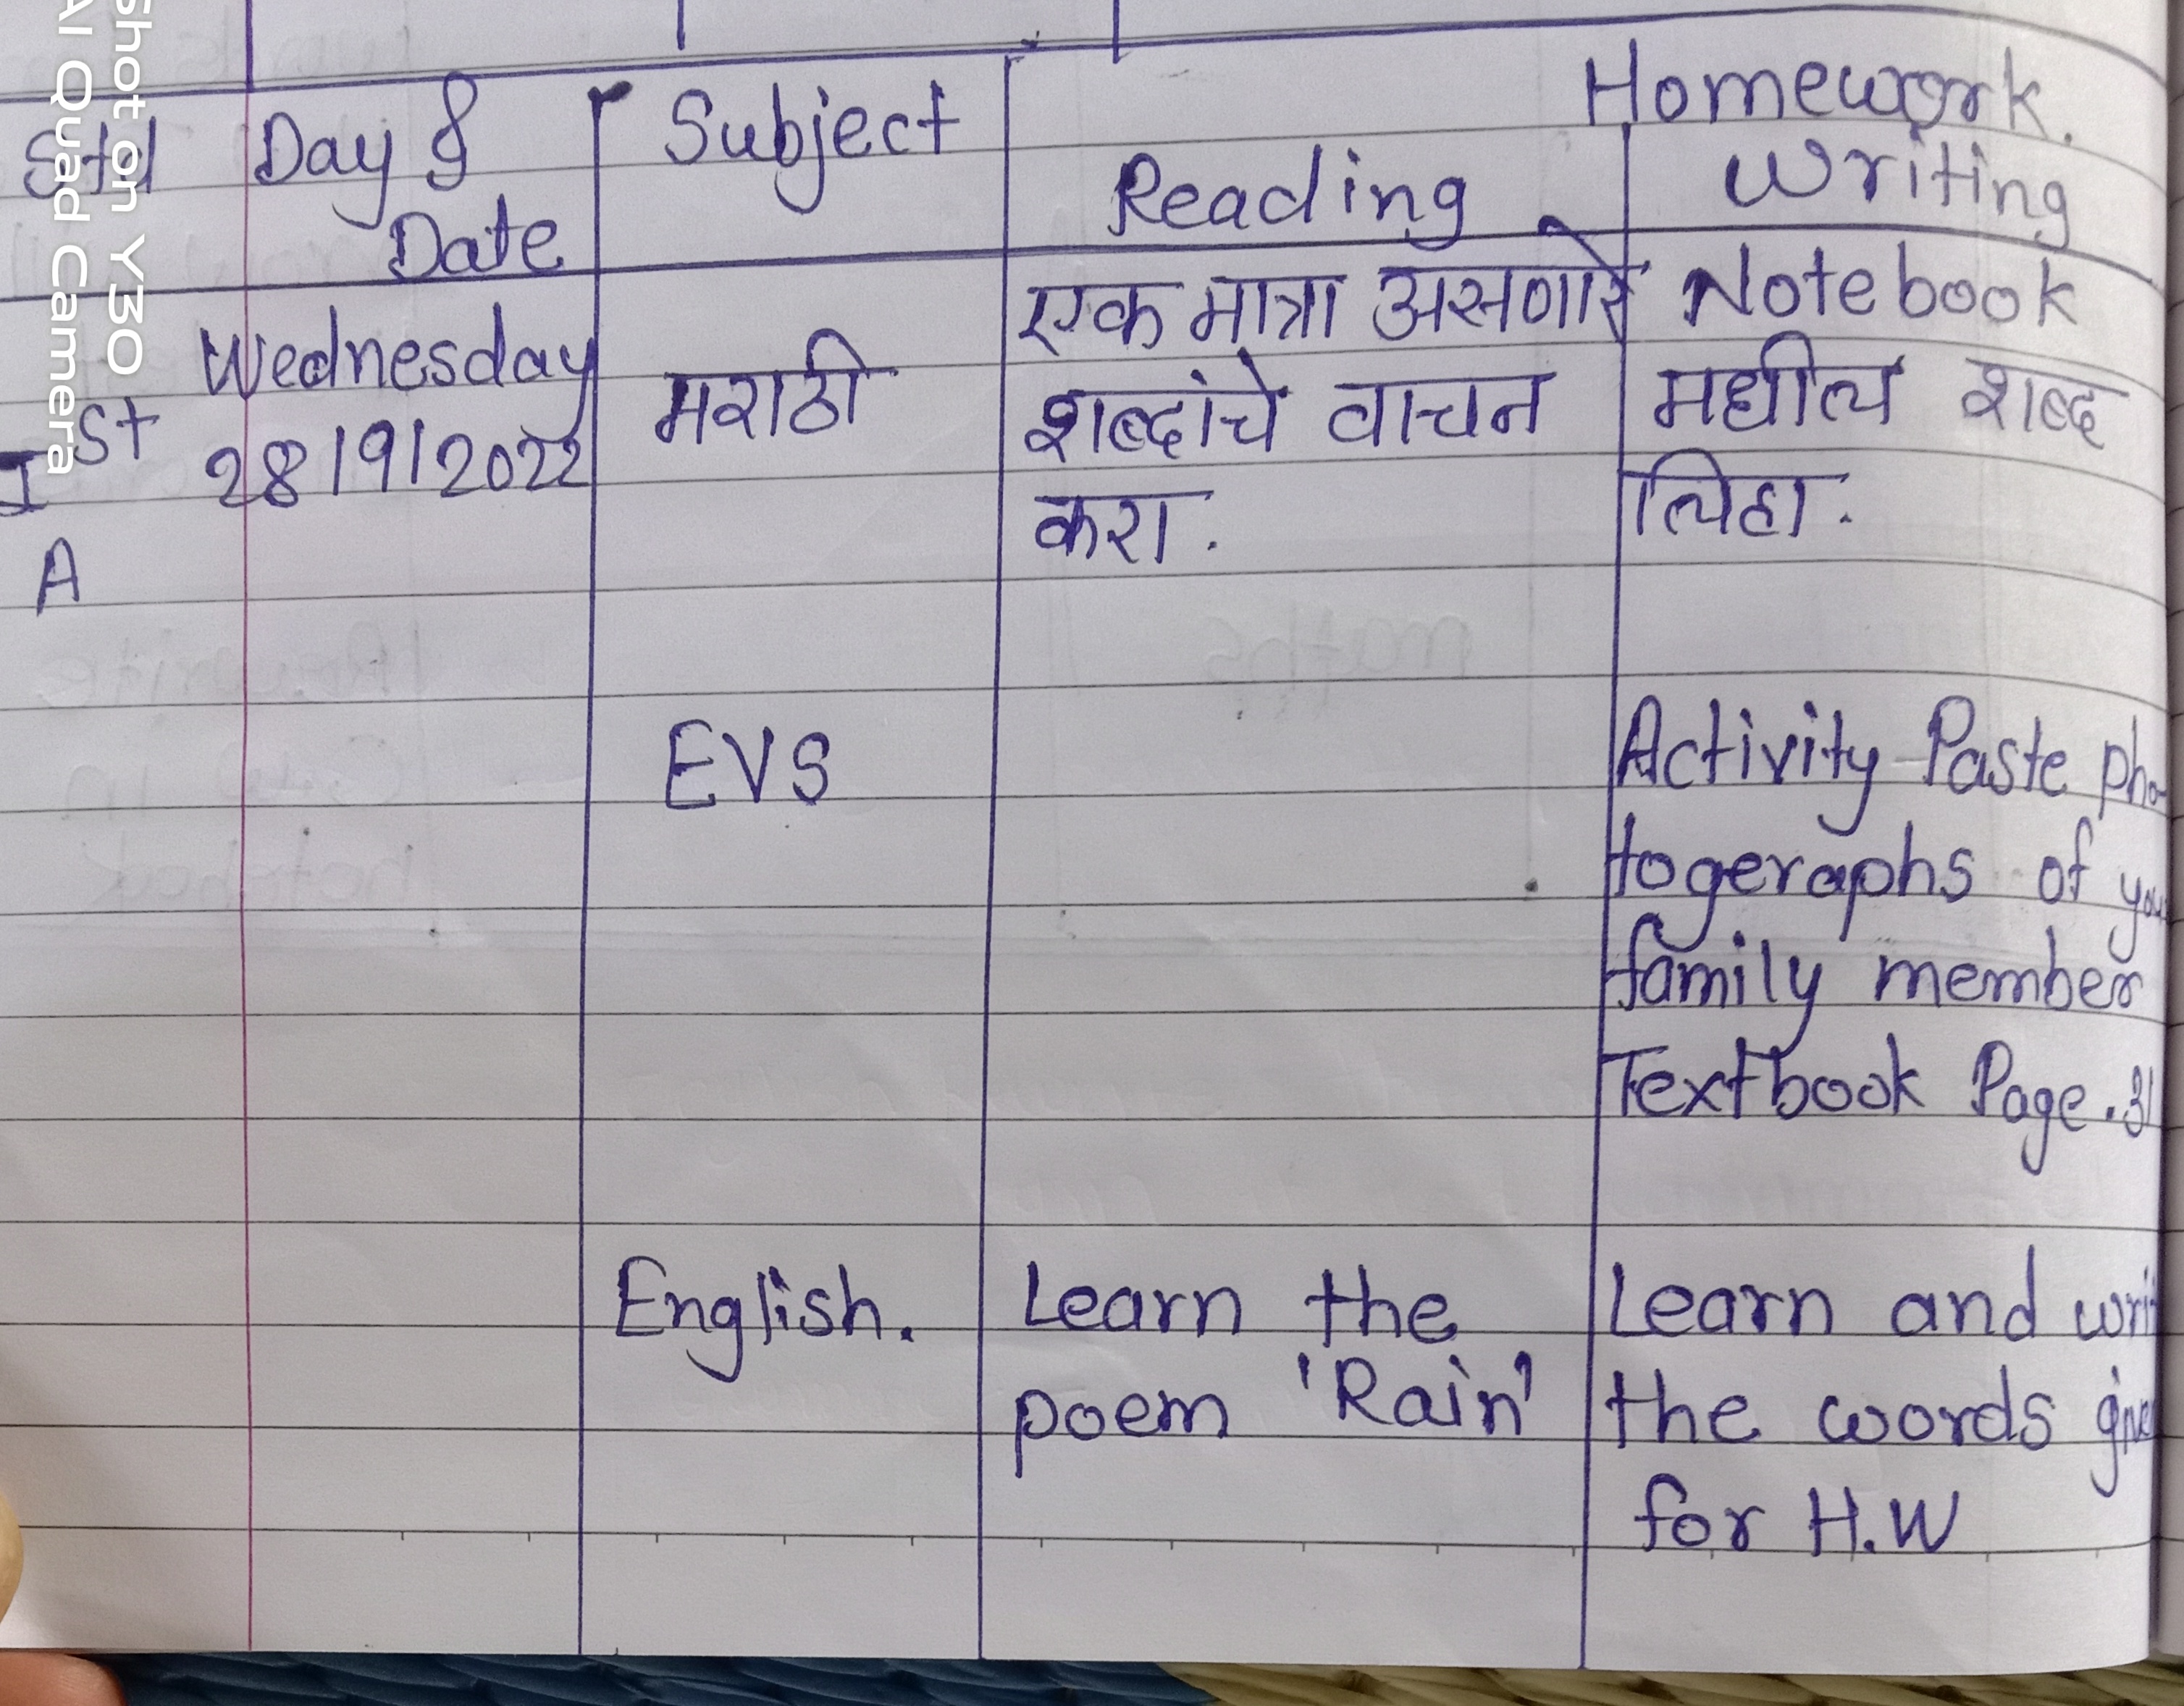 Homework.
Std Day & Subject
Date Reading Writing
Wednesday मराठी एक मात्रा असणारे Notebook
Ist 28/9/2022 शब्दांचे वाचन मधील शब्द
A करा. लिहा.
EVS Activity Paste pho
togeraphs of you
family member
Textbook Page.31
English. Learn the Learn and wri
poem 'Rain' the words give
for H.W
Shot on Y30
AI Quad Camera